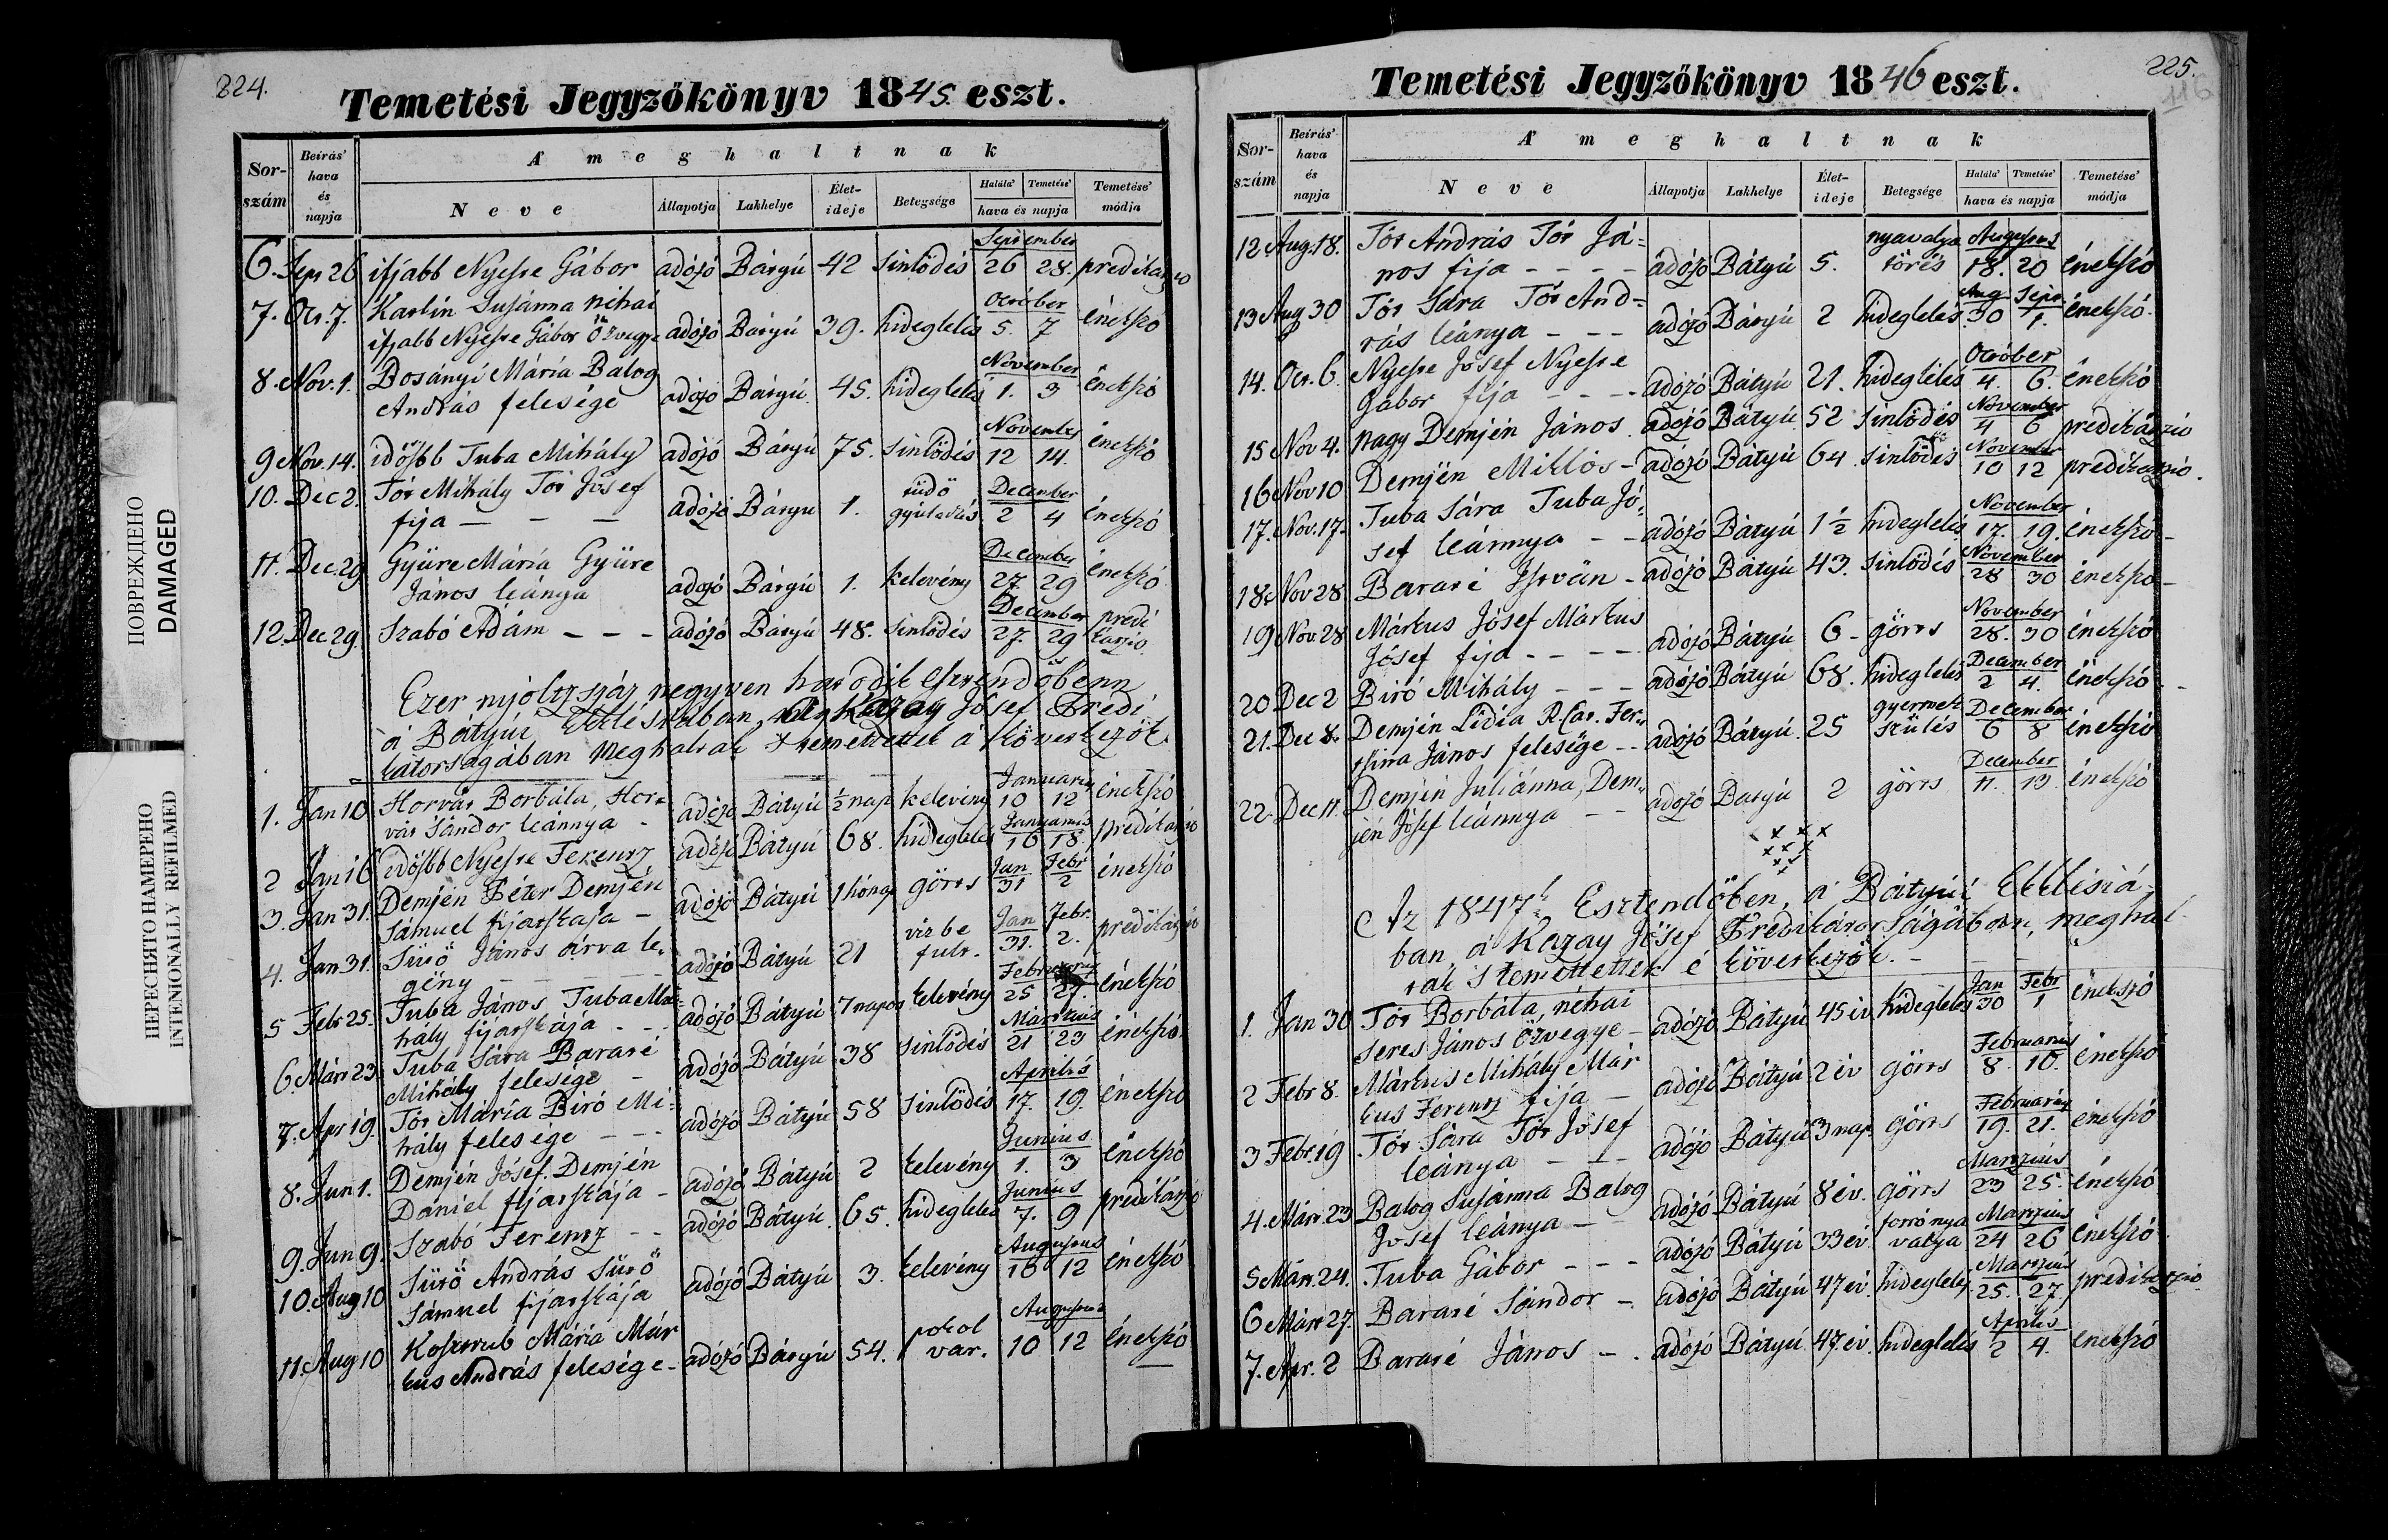 224.
Temetési Jegyzőkönyv 1845. eszt.
Sorszám Beírás' hava és napja A' meghaltnak
Neve Állapotja Lakhelye Élet-ideje Betegsége Halála' Temetése' hava és napja Temetése' módja
September
6. Sept 26 ifjabb Nyeste Gábor adózó Bátyú 42 sinlődés 26 28. predikatzio
7. Oct. 7. Karlin Susánna néhai October
ifjabb Nyeste Gábor Özvegye adózó Bátyú 39. hideglelés 5. 7 énekszó
8. Nov. 1. Bosányi Mária Balog November
András felesége adózó Bátyú 45. hideglelés 1. 3 énekszó
November
9 Nov. 14. időşbb Tuba Mihály adózó Bátyú 75. sinlődés 12 14. énekszó
10. Dec 2. Tót Mihály Tót Jósef tüdő December
fija — — — adózó Bátyú 1. gyúladás 2 4 énekszó
11. Dec. 29 Gyüre Mária Gyüre December
János leánya adozó Bátyú 1. kelevény 27. 29 énekszó
December predi
12. Dec 29. Szabó Ádám - - - adózó Bátyú 48. sinlődés 27. 29 kátzio.
Ezer nyoltzszáz negyven hatodik Esztendőbenn
á Bátyúi Ekklésiában, Kazay Jósef Predi
kátorságában meghaltak s temettettek á következők.
1. Jan 10 Horvát Borbála, Hor= Januarius
vát Sándor leánnya - adózó Bátyú ½ nap kelevény 10 12 énekszó
Januarius
2 Jan 16 időşbb Nyeste Ferentz adózó Bátyú 68. hideglelés 16 18. predikatzió
3. Jan 31. Demjén Péter Demjén Jan Febr
Sámuel fijatskája - adózó Bátyú 1 hónap görts 31 2 énekszó
4. Jan 31. Sütő János árva le= vizbe Jan Febr.
gény - - - adózó Bátyú 21 fult. 31. 2. predikátzió
5 Febr 25. Tuba János Tuba Mi= Februarius
hály fijatskája - - - adózó Bátyú 7 napos kelevény 25 27. énekszó
6. Márt 23. Tuba Sára Bararé Martzius
Mihály felesége - adózó Bátyú 38 sinlődés 21 23 énekszó.
7. Apr 19. Tót Mária Biró Mi= Aprilis
hály felesége - - - adózó Bátyú 58 sinlődés 17. 19. énekszó
8. Jun 1. Demjén Jósef. Demjén Junius
Dániel fijatskája - adózó Bátyú 2 kelevény 1. 3 énekszó
Junius
9. Jun 9. Szabó Ferentz - - adózó Bátyú. 65. hideglelés 7. 9 predikátzió
10. Aug 10 Sütő András Sütő Augustus
Sámuel fijatskája adózó Bátyú 3. kelevény 10 12 énekszó
11. Aug 10 Kosztrub Mária Már pokol Augustus
kus András felesége - adózó Bátyú 54. var. 10 12 énekszó
225.
116
Temetési Jegyzőkönyv 1846 eszt.
Sorszám Beírás' hava és napja A' meghaltnak
Neve Állapotja Lakhelye Élet-ideje Betegsége Halála' Temetése' hava és napja Temetése' módja
12 Aug. 18. Tót András Tót Já= nyavalya Augustus
nos fija - - - - adózó Bátyú 5. törés 18. 20 énekszó
13 Aug 30 Tót Sára Tót And= Aug Sept.
rás leánya - - - adózó Bátyú 2 hideglelés 30 1. énekszó.
14. Oct. 6. Nyeste Jósef Nyeste October
Gábor fija - - - - adózó Bátyú 21. hideglelés 4. 6. énekszó
November
15 Nov 4. nagy Demjén János. adózó Bátyú. 52 sinlődés 4 6 predikátzió
November
16 Nov 10 Demjén Miklós - adózó Bátyú 64. sinlődés 10 12 predikatzio.
17. Nov. 17. Tuba Sára Tuba Jó= November
sef leánnya - - adózó Bátyú 1½ hideglelés 17. 19. énekszó -
November
18. Nov 28. Bararé István - adózó Bátyú 43. sinlődés 28 30 énekszó -
19 Nov 28 Márkus Jósef Márkus November
Jósef fija - - - - adózó Bátyú 6 - görts 28. 30 énekszó
December
20 Dec 2 Biró Mihály - - - adózó Bátyú 68. hideglelés 2 4. énekszó -
21. Dec 8. Demjén Lidia R. Cat. Fer= gyermek December
János felesége - - adózó Bátyú. 25 szülés 6 8 énekszó
22. Dec 11. Demjén Juliánna, Dem= December
jén Jósef leánnya - - adozó Bátyú 2 görts 11. 13. énekszó
Az 1847k Esztendőben, á Bátyúi Ekklésiá
ban, á Kazay Jósef Predikátorságában, meghal
tak s temettettek é következők. -
1. Jan 30 Tót Borbála, néhai Jan Febr
Seres János özvegye - adózó Bátyú 45 év hideglelés 30 1 énekszó
2 Febr 8. Márkus Mihály Már Februarius
kus Ferentz fija - adózó Bátyú 2 év görts 8. 10. énekszó
3 Febr. 19 Tót Sára Tót Jósef Februarius
leánya - - - adózó Bátyú 3 nap. görts 19. 21. énekszó
4. Márt 23 Balog Susánna Balog Martzius
Josef leánya - adózó Bátyú 8 év. görts 23 25. énekszó
forró nya Martzius
5 Márt. 24. Tuba Gábor - - - adózó Bátyú 33 év valya 24 26 énekszó
Martzius
6 Márt 27. Bararé Sándor - adózó Bátyú 47 év. hideglelés 25. 27. predikatzió.
Aprilis
7. Apr. 2 Bararé János - . adózó Bátyú 47. év. hideglelés 2 4. énekszó
ПОВРЕЖДЕНО
DAMAGED
ПЕРЕСНЯТО НАМЕРЕНО
INTENIONALLY REFILMED